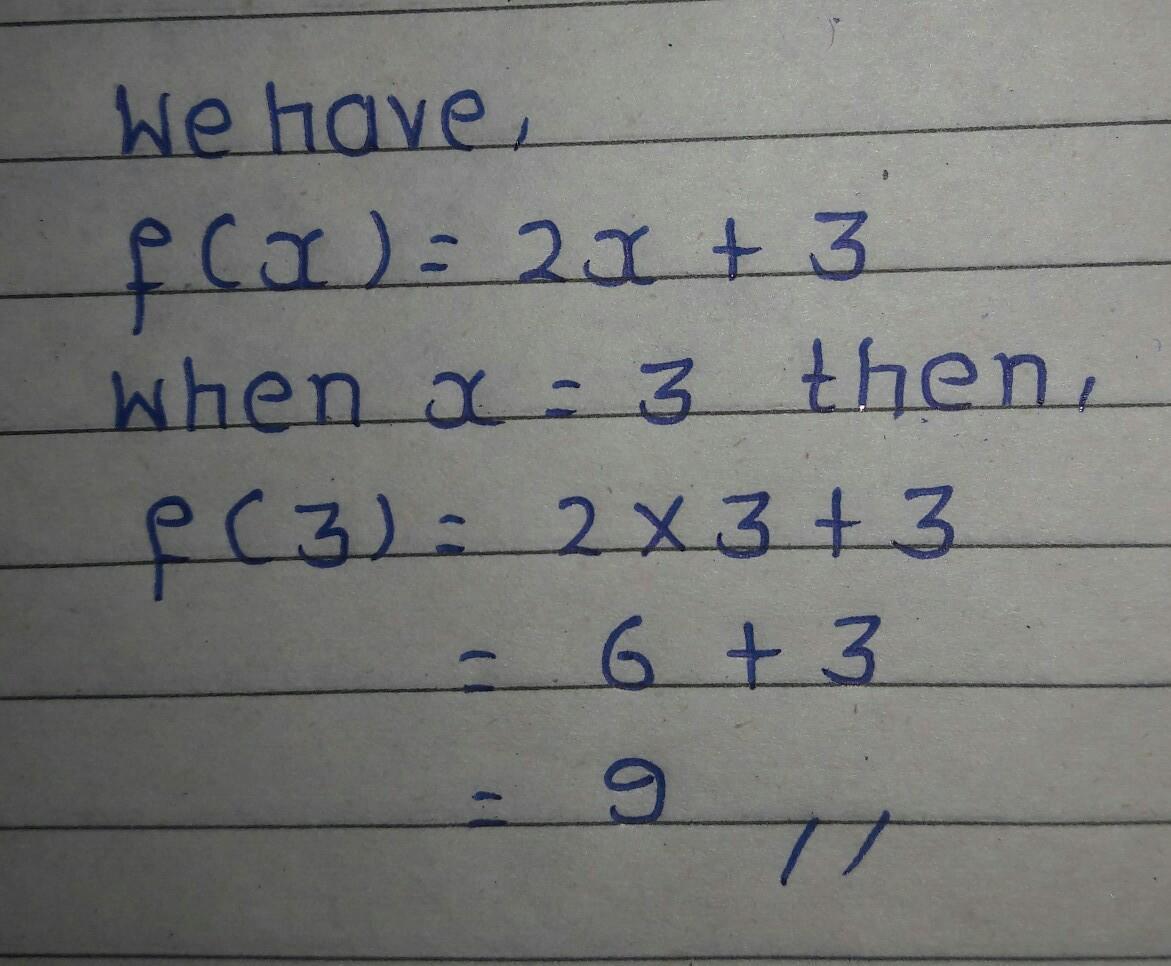 We have,
f(x) = 2x + 3
when x = 3 then,
f(3) = 2 × 3 + 3
= 6 + 3
= 9 //